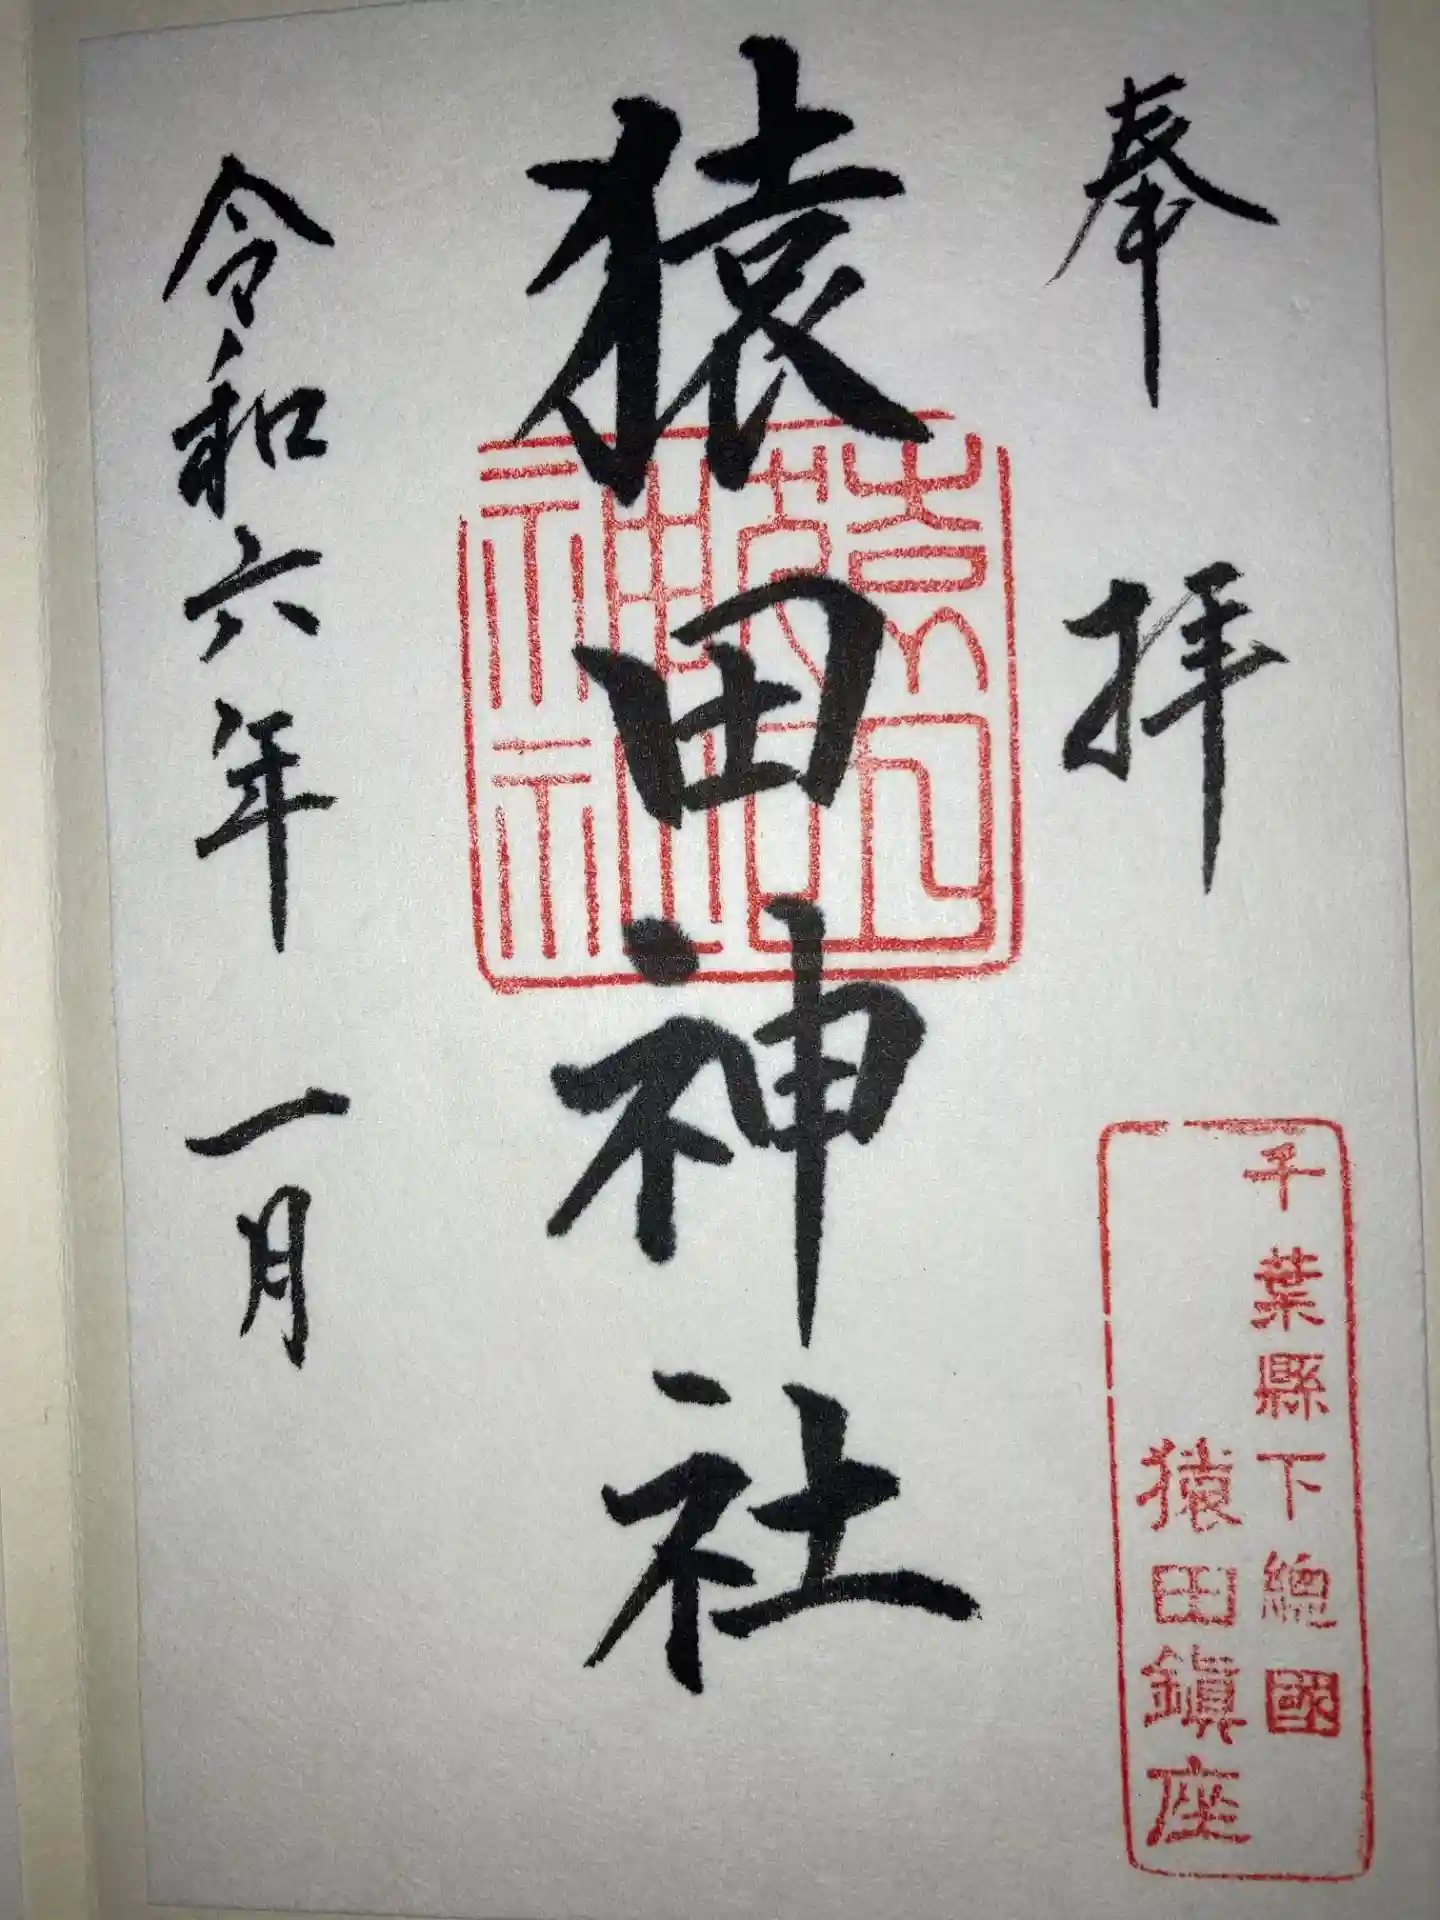 奉拝
千葉縣下總國
猿田鎮座
猿田神社
令和六年一月